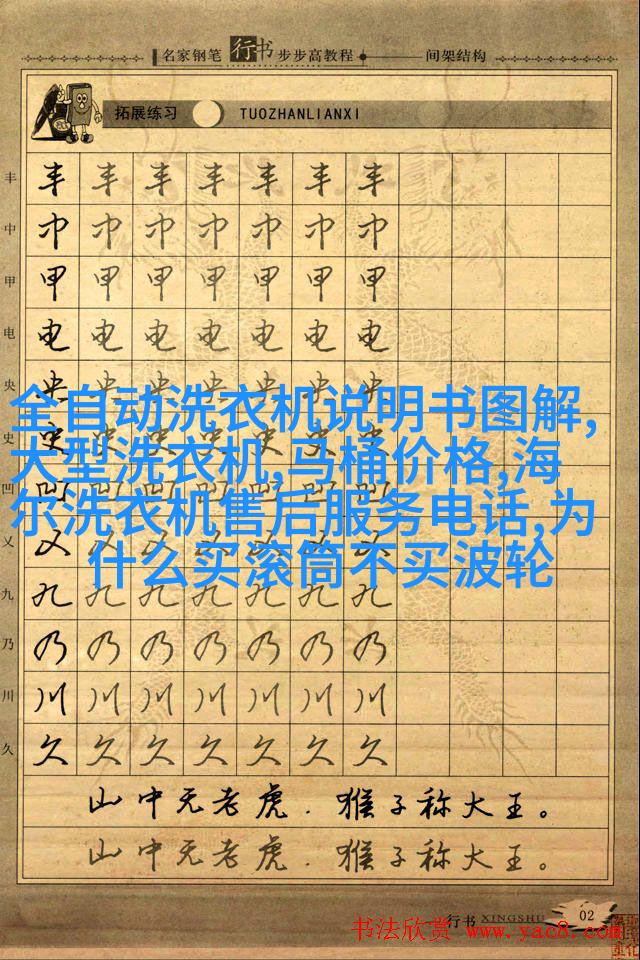 名家钢笔行书步步高教程 间架结构
拓展练习 TUOZHANLIANXI
丰 丰丰丰丰丰丰丰
中 中中中中中中中
甲 甲甲甲甲甲甲甲
电 电电电电电电电
央 央央央央央央央
全自动洗衣机说明书图解,
史 史史史史史史史
大型洗衣机,马桶价格,海
凹 凹凹凹凹凹凹凹
尔洗衣机售后服务电话,为
乂 乂乂乂乂乂乂乂
什么买滚筒不买波轮
九 九九九九九九九
乃 乃乃乃乃乃乃乃
川 川川川川川川川
久 久久久久久久久
山中无老虎．猴子称大王。
山中无老虎．猴子称大王。
行书 XINGSHU 02
书法欣赏 www.yac8.com